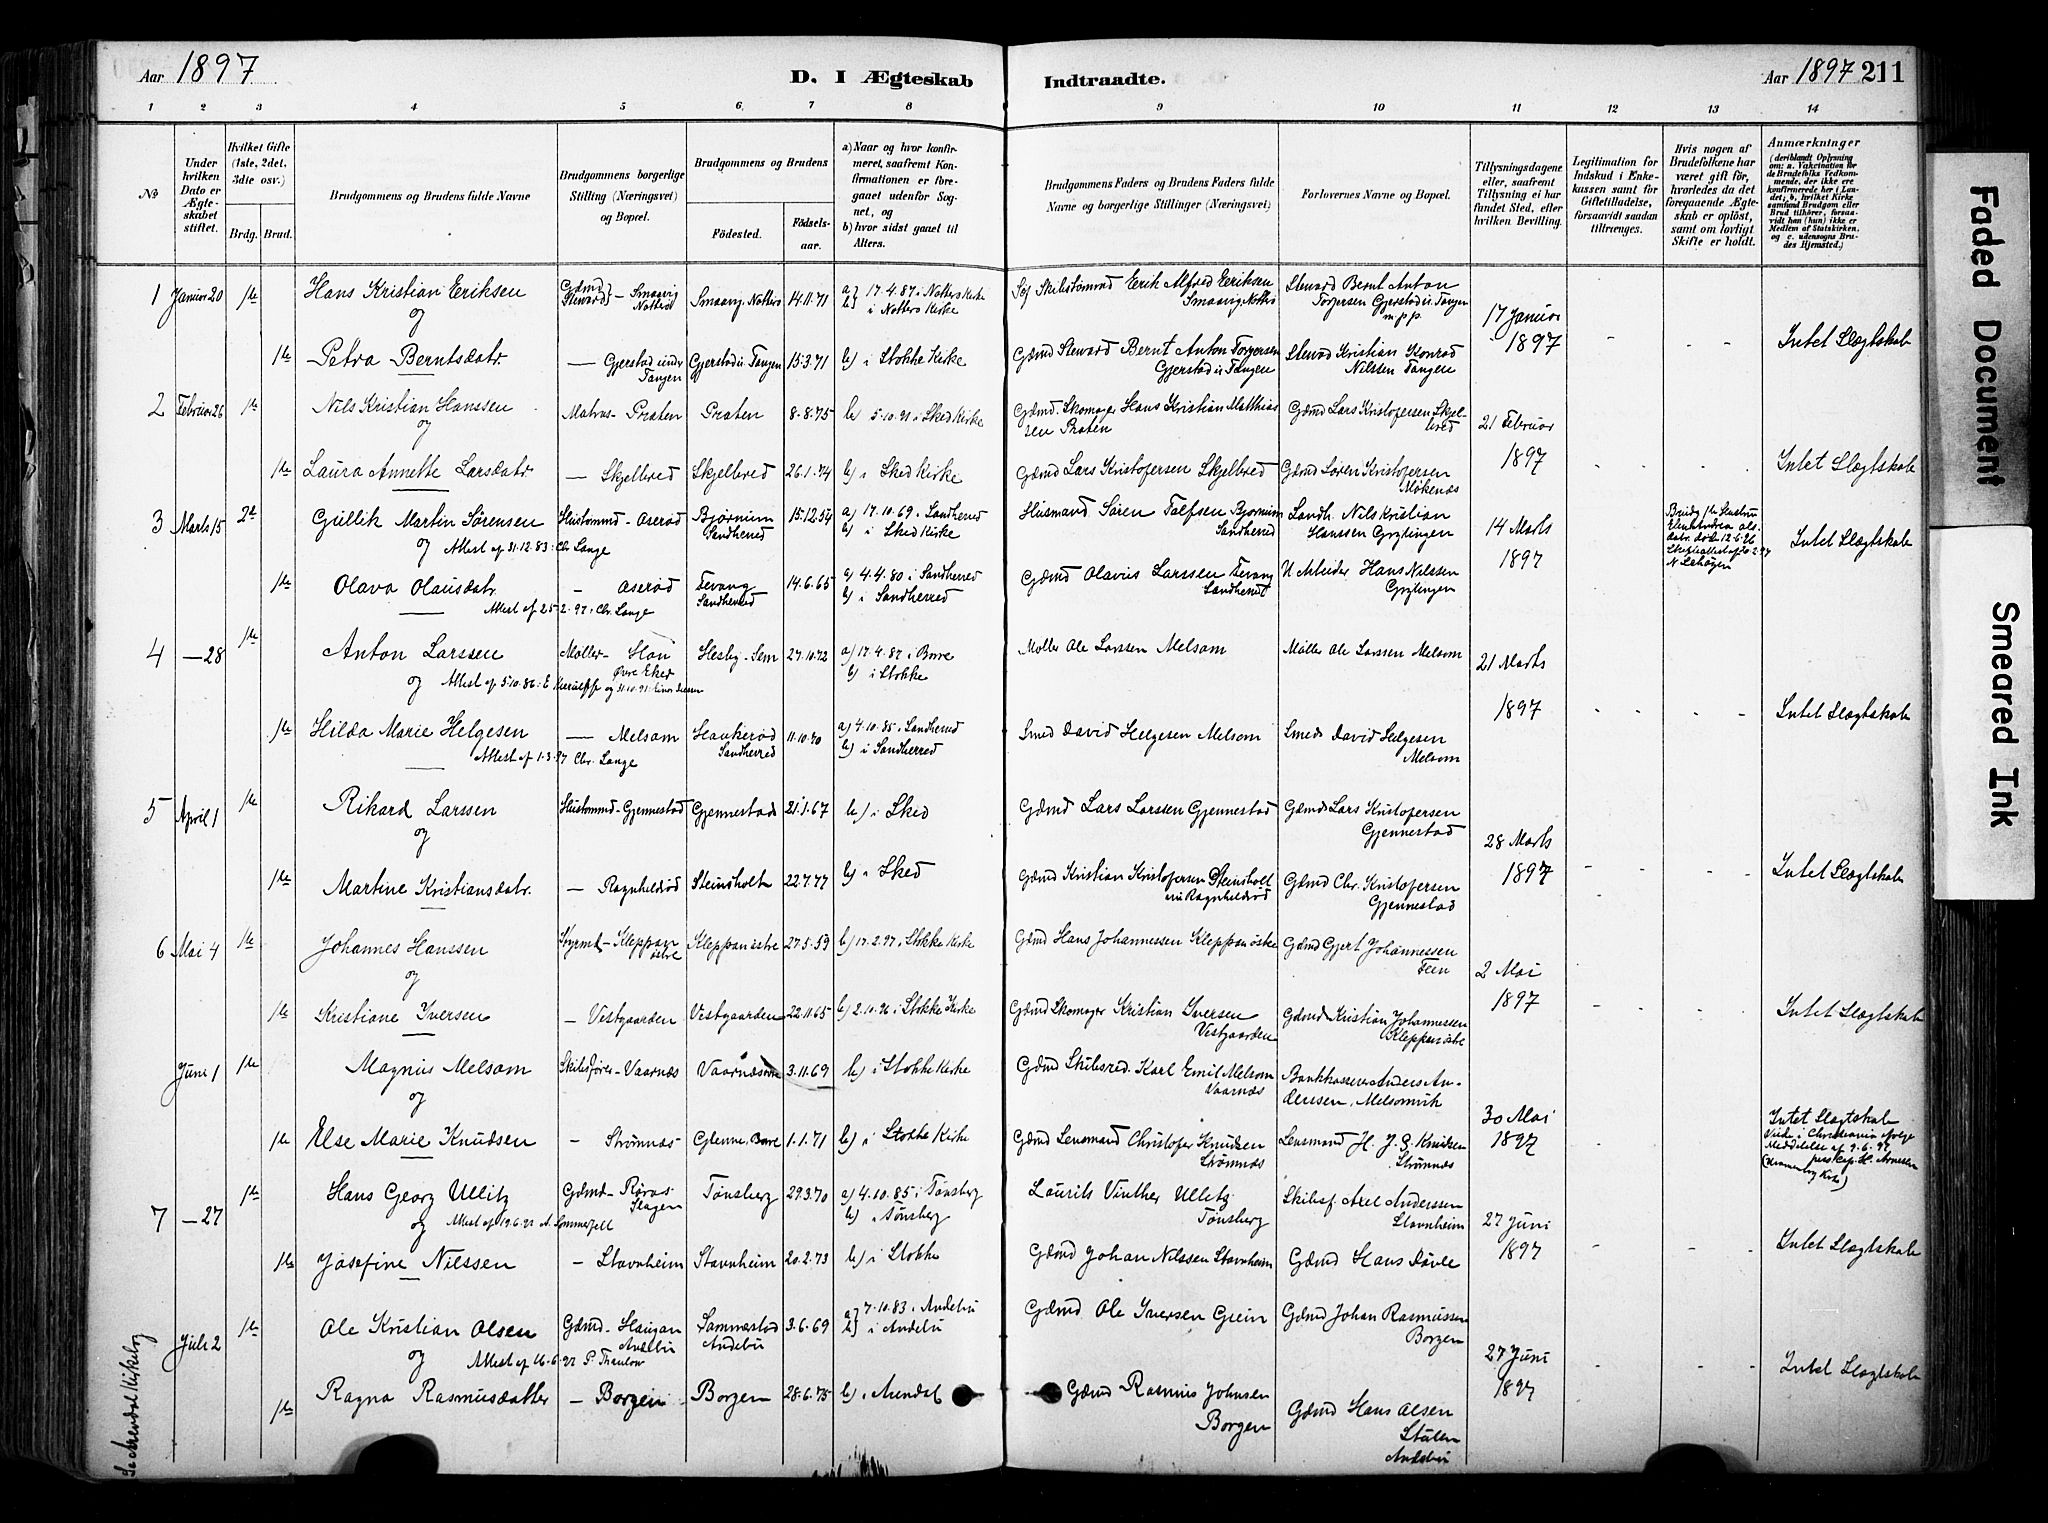 Aar 1897
D. I Ægteskab
Indtraadte.
Aar 1897 211
1 2 3 4 5 6 7 8 9 10 11 12 13 14
№
Under hvilken Dato er Ægteskabet stiftet.
Hvilket Gifte (1ste, 2det, 3die osv.)
Brdg. Brud.
Brudgommens og Brudens fulde Navne
Brudgommens borgerlige Stilling (Næringsvei) og Bopæl.
Brudgommens og Brudens
Fødested.
Fødsels-aar.
a) Naar og hvor konfirmeret, saafremt Konfirmationen er foregaaet udenfor Sognet, og
b) hvor sidst gaaet til Alters.
Brudgommens Faders og Brudens Faders fulde Navne og borgerlige Stillinger (Næringsvei)
Forlovernes Navne og Bopæl.
Tillysningsdagene eller, saafremt Tillysning ei har fundet Sted, efter hvilken Bevilling.
Legitimation for Indskud i Enkekassen samt for Giftetilladelse, forsaavidt saadan tiltrænges.
Hvis nogen af Brudefolkene har været gift før, hvorledes da det foregaaende Ægteskab er opløst, samt om lovligt Skifte er holdt.
Anmærkninger
(deriblandt Oplysning om: a. Vakcination for de Brudefolks Vedkommende, der ikke ere konfirmerede her i Landet; b. hvilket Kirkesamfund Brudgom eller Brud tilhører, forsaavidt han (hun) ikke er Medlem af Statskirken, og c. udensogns Brudes Hjemsted.)
1 Januar 20 1ste Hans Kristian Eriksen Gdmd Steward - Smaavig Nøtterø Smaavig Nøtterø 14.11.71 a) 17.4.87 i Nøtterø Kirke b) i Nøtterø Kirke
Skibstømmd Erik Alfred Eriksen Smaavig Nøtterø
Steward Bernt Anton Torgersen Gjerstad u. Tangen m.p.p.
17 Januar 1897
og
1ste Petra Berntsdatr. — Gjerstad under Tangen Gjerstad u. Tangen 15.3.71 b) i Stokke Kirke
Gdmd Steward Bernt Anton Torgersen Gjerstad u. Tangen
Steward Kristian Konrad Nilssen Tangen
Intet Slægtskab
2 Februar 26 1ste Nils Kristian Hanssen Matros - Præsten Præsten 8-8.75 b) 5.10.91 i Sked Kirke
Gdmd. Skomager Hans Kristian Matthiassen Præsten
Gdmd Lars Kristofersen Skjelbred
21 Februar 1897
og
1ste Laura Annette Larsdatr. — Skjelbred Skjelbred 26.1.74 b) i Sked Kirke
Gdmd Lars Kristofersen Skjelbred
Gdmd Søren Kristofersen Møkenæs
Intet Slægtskab
3 Marts 15 2det Gullik Martin Sørensen Hustømmd - Aserød Bjørnum Sandherred 15.12.54 a) 17.10.69 i Sandherred b) i Sked Kirke
Husmand Søren Bjørnum Sandherred
Landh. Nils Kristian Hanssen Grytingen
14 Marts 1897
og Attest af 31.12.83: Chr. Lange
1ste Olava Olausdatr. — Aserød Fevang Sandherred 14.6.65 a) 4.4.80 i Sandherred b) i Sandherred
Gdmd Olavus Larssen Fevang Sandherred
Arbeider Hans Nilssen Grytingen
Intet Slægtskab
Attest af 25-2.97: Chr. Lange
4 — 28 1ste Anton Larssen Møller - Øvre Eker Hesby - Sem 27.10.72 a) 17.4.87 i Borre b) i Stokke
Møller Ole Larssen Melsom
Møller Ole Larssen Melsom
21 Marts 1897
og
1ste Hilda Marie Helgesen — Melsom Haukerød Sandherred 11.10.70 a) 4.10.85 i Sandherred b) i Sandherred
Smed David Helgesen Melsom
Smed David Helgesen Melsom
Intet Slægtskab
Attest af 1-3.97 Chr. Lange
5 April 1 1ste Rikard Larssen Hustømmd - Gjennestad Gjennestad 21.1.67 b) i Sked
Gdmd Lars Larssen Gjennestad
Gdmd Lars Kristofersen Gjennestad
28 Marts 1897
og
1ste Martine Kristiansdatr. — Ragnhildrød Steinsholt 22.7.77 b) i Sked
Gdmd Kristian Kristofersen Steinsholt nu Ragnhildrød
Gdmd Chr. Kristofersen Gjennestad
Intet Slægtskab
6 Mai 4 1ste Johannes Hanssen Styrmd - Kleppan østre Kleppan østre 27.5.59 b) 17.2.97 i Stokke Kirke
Gdmd Hans Johannessen Kleppan østre
Gdmd Gjert Johannessen Feen
2 Mai 1897
og
1ste Kristiane Iversen — Vestgaarden Vestgaarden 22.11.65 b) 2.10.96 i Stokke Kirke
Gdmd Skomager Kristian Iversen Vestgaarden
Gdmd Kristian Johannessen Kleppan østre
Intet Slægtskab
Juni 1 1ste Magnus Melsom Skibsfører - Vaarnæs 3.11.69 b) i Stokke Kirke
Gdmd Skibsred. Karl Emil Melsom Vaarnæs
Bankkasserer Anders Andersen, Melsomvik
30 Mai 1897
og
1ste Else Marie Knudsen — Strømnæs Glenne, Borre 1.1.71 b) i Stokke Kirke
Gdmd Lensmand Christofer Knudsen Strømnæs
Lensmand H. J. G. Knudsen Strømnæs
Intet Slægtskab
Viede i Christiania ifølge Meddelelse af 9.6.97
7 — 27 1ste Hans Georg Ullitz Gdmd - Slagen Tønsberg 29.3.70 a) 4.10.85 i Tønsberg b) i Tønsberg
Laurits Vinther Ullitz Tønsberg
Skibsf. Axel Anderssen Stavnheim
27 Juni 1897
og Attest af 19.6.97 A. Sommerfelt
1ste Josefine Nilssen — Stavnheim Stavnheim 20.2.73 b) i Stokke
Gdmd Johan Nilssen Stavnheim
Gdmd Hans
Intet Slægtskab
Juli 2 1ste Ole Kristian Olsen Gdmd - Haugan Andebu Andebu 3.6.69 a) 7.10.83 i Andebu b) i Andebu
Gdmd Ole Iversen
Gdmd Johan Rasmussen Borgen
27 Juni 1897
og Attest af 16.6.97 P. Thaulow
1ste Ragna Rasmusdatter — Borgen Borgen 28.6.75 b) i Arendal
Gdmd Rasmus Johnsen Borgen
Gdmd Hans Olsen Andebu
Intet Slægtskab
Faded Document
Smeared Ink